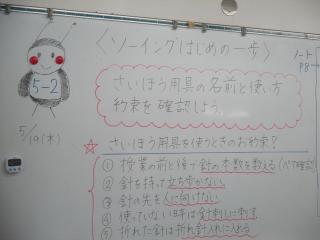 〈ソーイングはじめの一歩〉
ノート
P8
5-2
さいほう用具の名前と使い方
約束を確認しよう。
5/19(木)
☆ さいほう用具を使うときのお約束?
① 授業の前と後で針の本数を数える(ペアで確認)
② 針を持って立ち歩かない
③ 針の先を人に向けない
④ 使っていない時は針刺しに刺す
⑤ 折れた針は折れ針入れに入れる